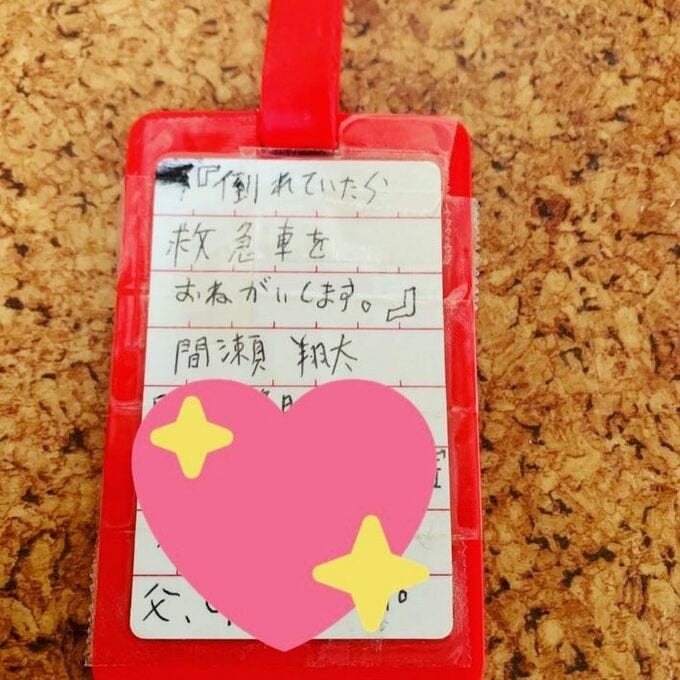 『倒れていたら
救急車を
おねがいします。』
間瀬 翔太
父、